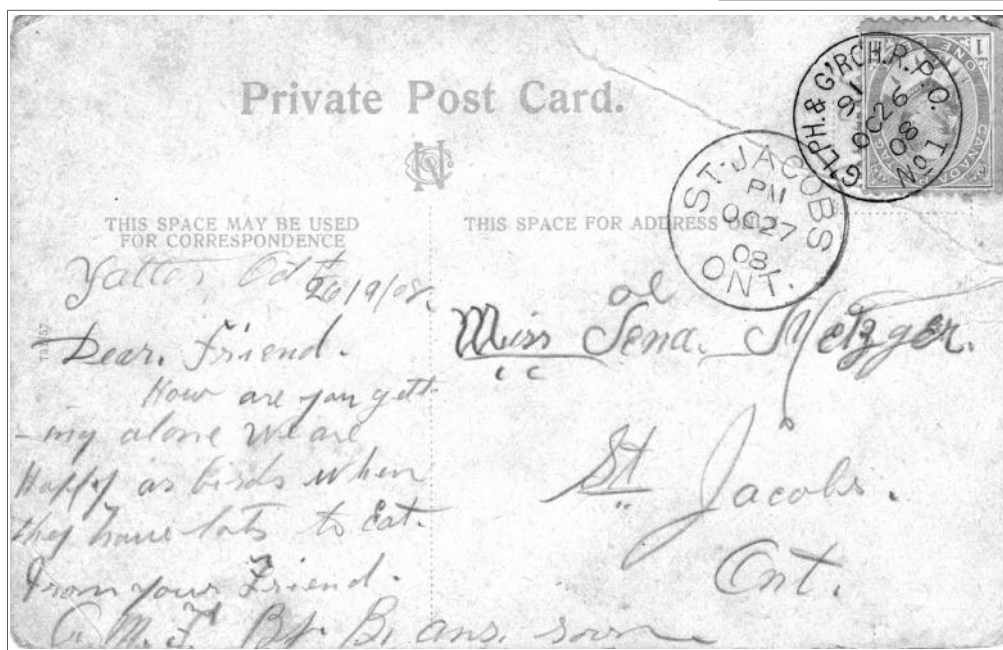 Private Post Card.
THIS SPACE MAY BE USED
FOR CORRESPONDENCE
THIS SPACE FOR ADDRESS ONLY
G'LPH. & G'RCH. R.P.O.
91
OC 26
08
No 1
ST. JACOBS
PM
OC 27
08
ONT.
1
ONE
CANADA POSTAGE
Yatton, Oct
26/9/08.
Dear. Friend.
How are you gett-
-ing alone we are
Happy as birds when
they have lots to Eat.
From your Friend.
ans. soon
Miss Lena. Metzger.
St Jacobs.
Ont.